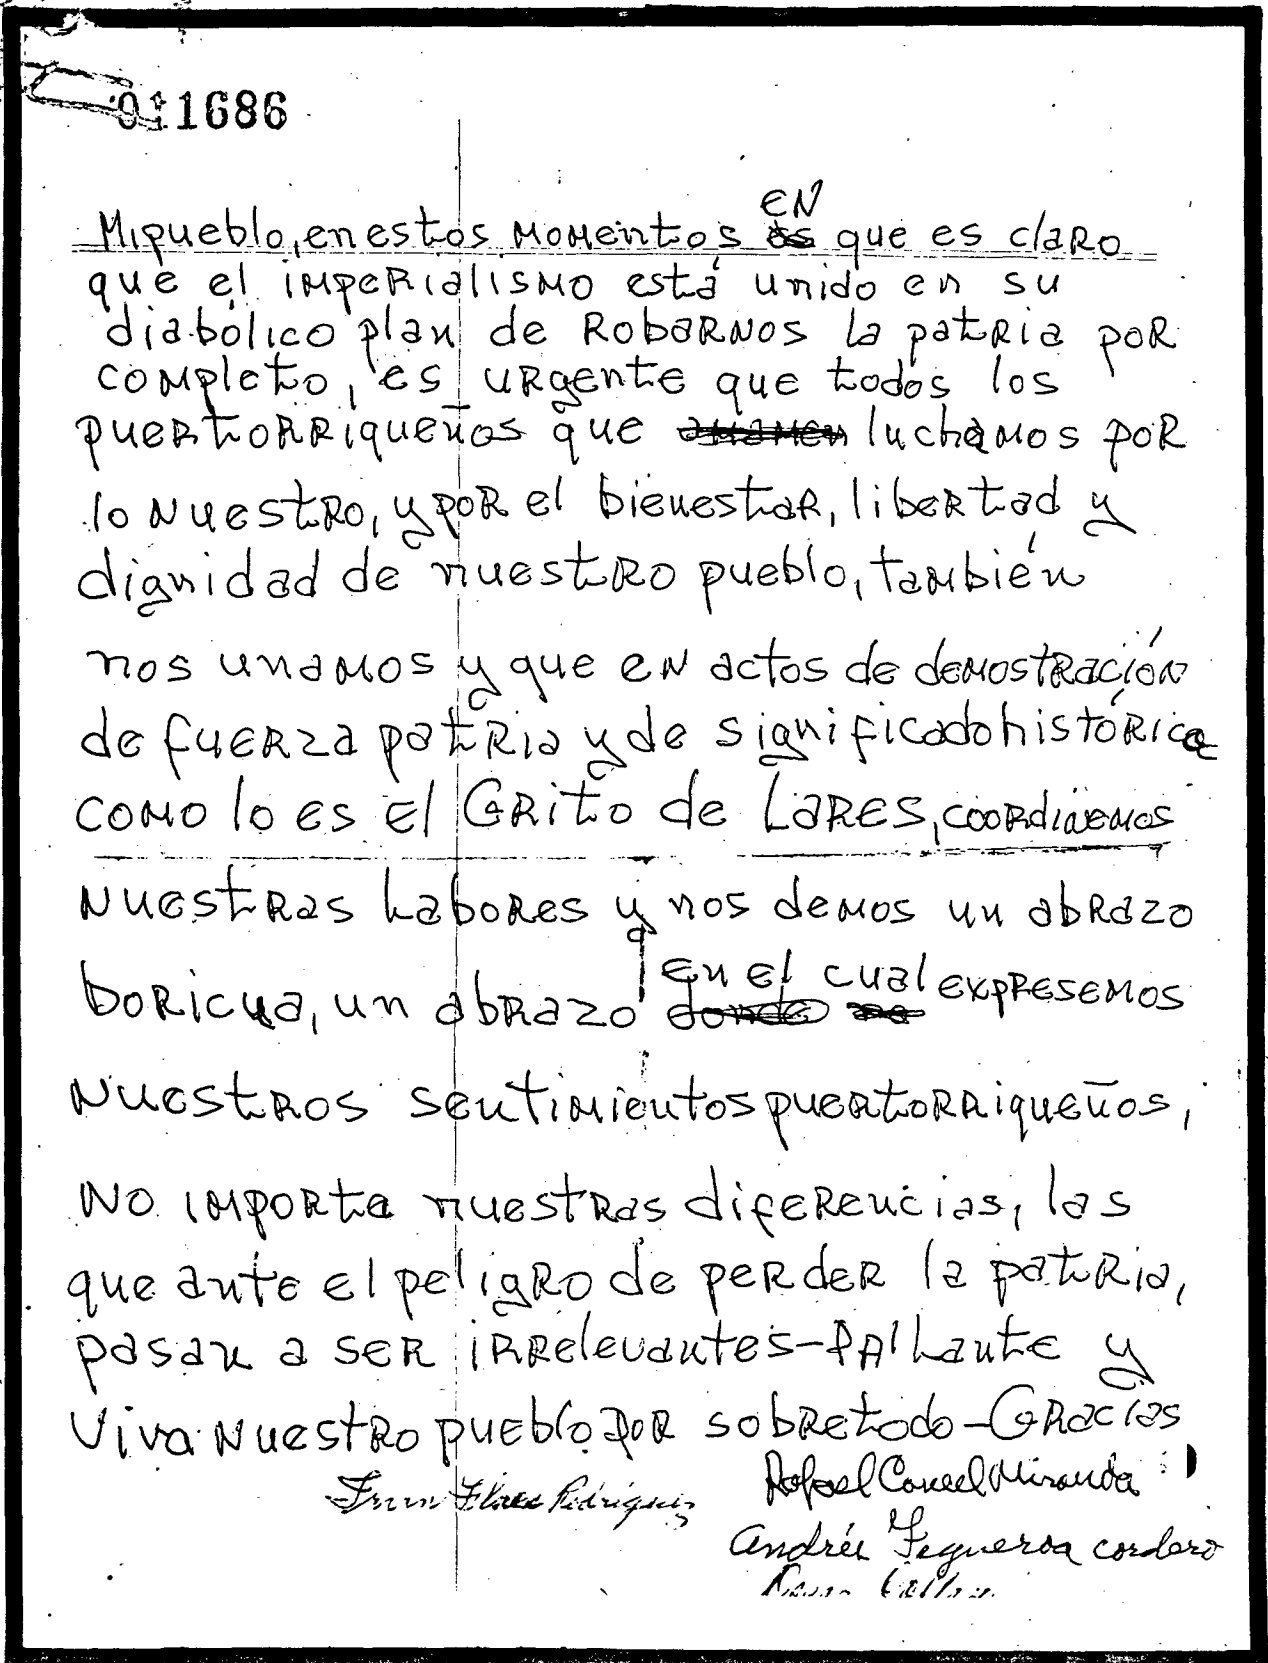 011686
Mi pueblo, en estos momentos en que es claro
que el imperialismo está unido en su
diabólico plan de robarnos la patria por
completo, es urgente que todos los
puertorriqueños que luchamos por
lo nuestro, y por el bienestar, libertad y
dignidad de nuestro pueblo, también
nos unamos y que en actos de demostración
de fuerza patria y de significado histórico
como lo es el Grito de Lares, coordinemos
nuestras labores y nos demos un abrazo
boricua, un abrazo en el cual expresemos
nuestros sentimientos puertorriqueños,
no importa nuestras diferencias, las
que ante el peligro de perder la patria,
pasan a ser irrelevantes - Pa'lante y
Viva nuestro pueblo por sobretodo - Gracias
Rafael Cancel Miranda
Irvin Flores Rodríguez
Andrés Figueroa Cordero